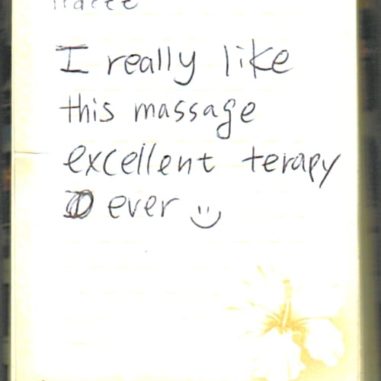 I really like
this massage
excellent terapy
ever